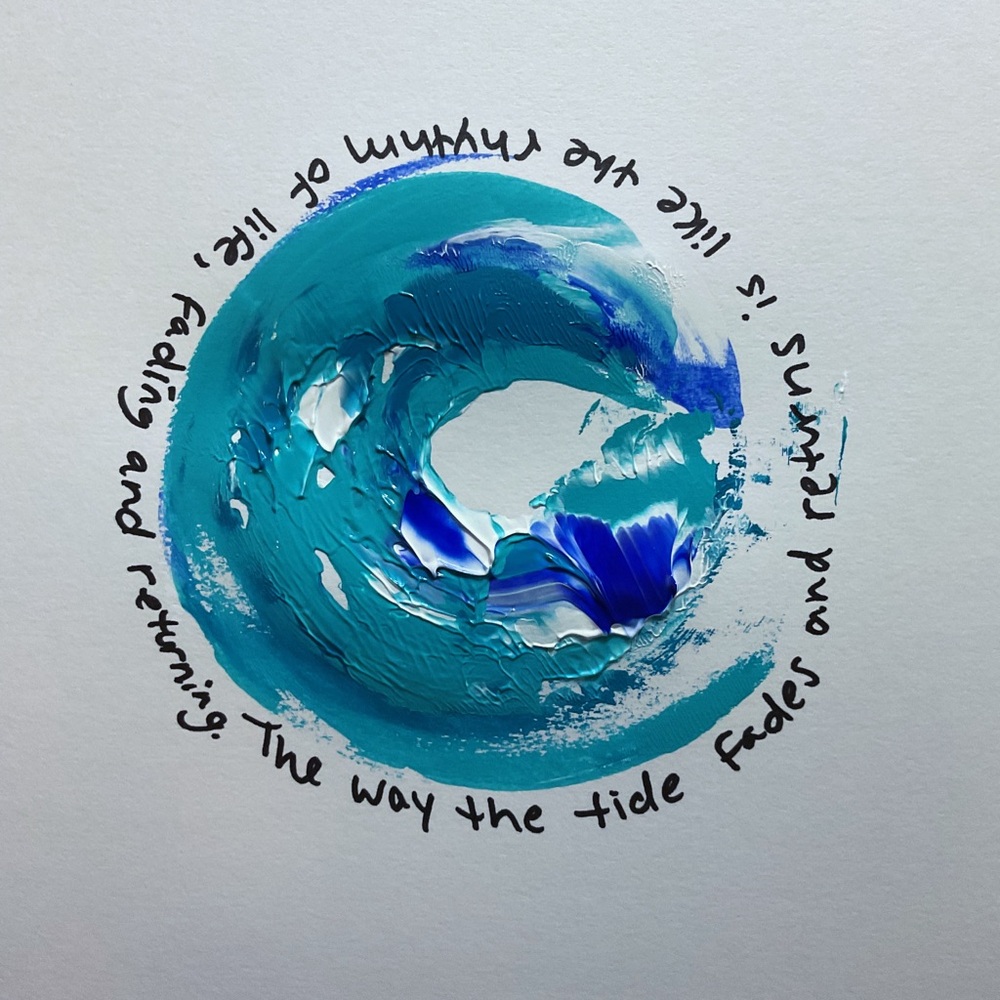 The way the tide fades and returns is like the rhythm of life, fading and returning.